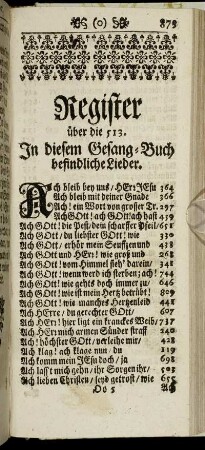 (o) 875
Register
über die 513.
In diesem Gesang-Buch
befindliche Lieder.
Ach bleib bey uns / HErr JEsu 364
Ach bleib mit deiner Gnade 366
Ach! ein Wort von grosser Tr. 297
Ach GOtt! ach GOtt! ach hast 439
Ach GOtt! die Pest dein scharffer Pfeil 651
Ach GOtt / du liebster GOtt! wie 330
Ach GOtt / erhör mein Seuffzen und 438
Ach GOtt und HErr! wie groß und 268
Ach GOtt! vom Himmel sieh' darein / 341
Ach GOtt! wenn werd ich sterben; ach! 744
Ach GOtt! wie gehts doch immer zu / 646
Ach GOtt! wie ist mein Hertz betrübt! 809
Ach GOtt! wie manches Hertzenleid 441
Ach HErre / du gerechter GOtt / 607
Ach HErr! hier ligt ein kranckes Weib / 737
Ach HErr mich armen Sünder straff 240
Ach! höchster GOtt / verleihe mir / 428
Ach klag! ach klage nun / du 119
Ach komm mein JEsu doch / ja 698
Ach laßt mich gehn / ihr Sorgen ihr / 503
Ach lieben Christen / seyd getrost / wie 655
Oo 5 Ach